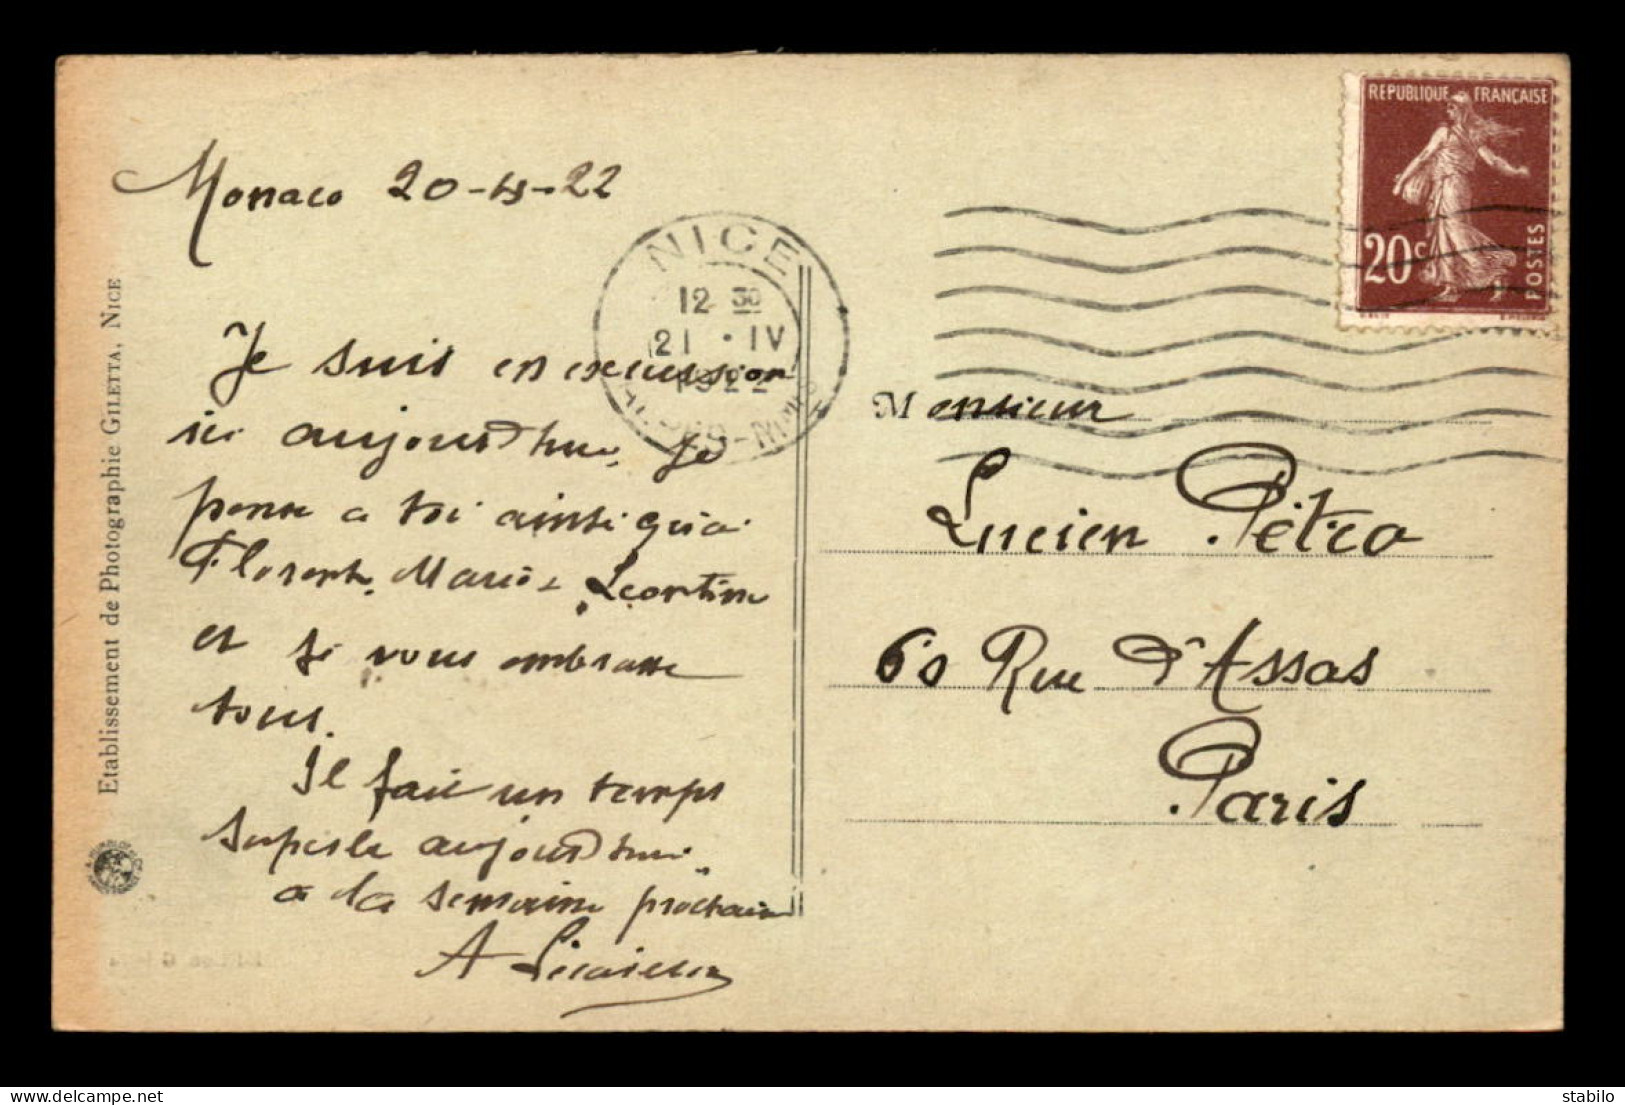 Monaco 20-4-22
Je suis en excursion
ici aujourd'hui. Je
pense a toi ainsi qu'a
Florente, Marie, Leontine
et je vous embrasse
tous.
Il fait un temps
superbe aujourd'hui.
a la semaine prochaine
A
Etablissement de Photographie GILETTA, NICE
NICE
12 30
21 • IV
1922
ALPES-MARITIMES
REPUBLIQUE FRANÇAISE
20c
POSTES
Monsieur
Lucien Pétra
60 Rue d'Assas
Paris
stabilo